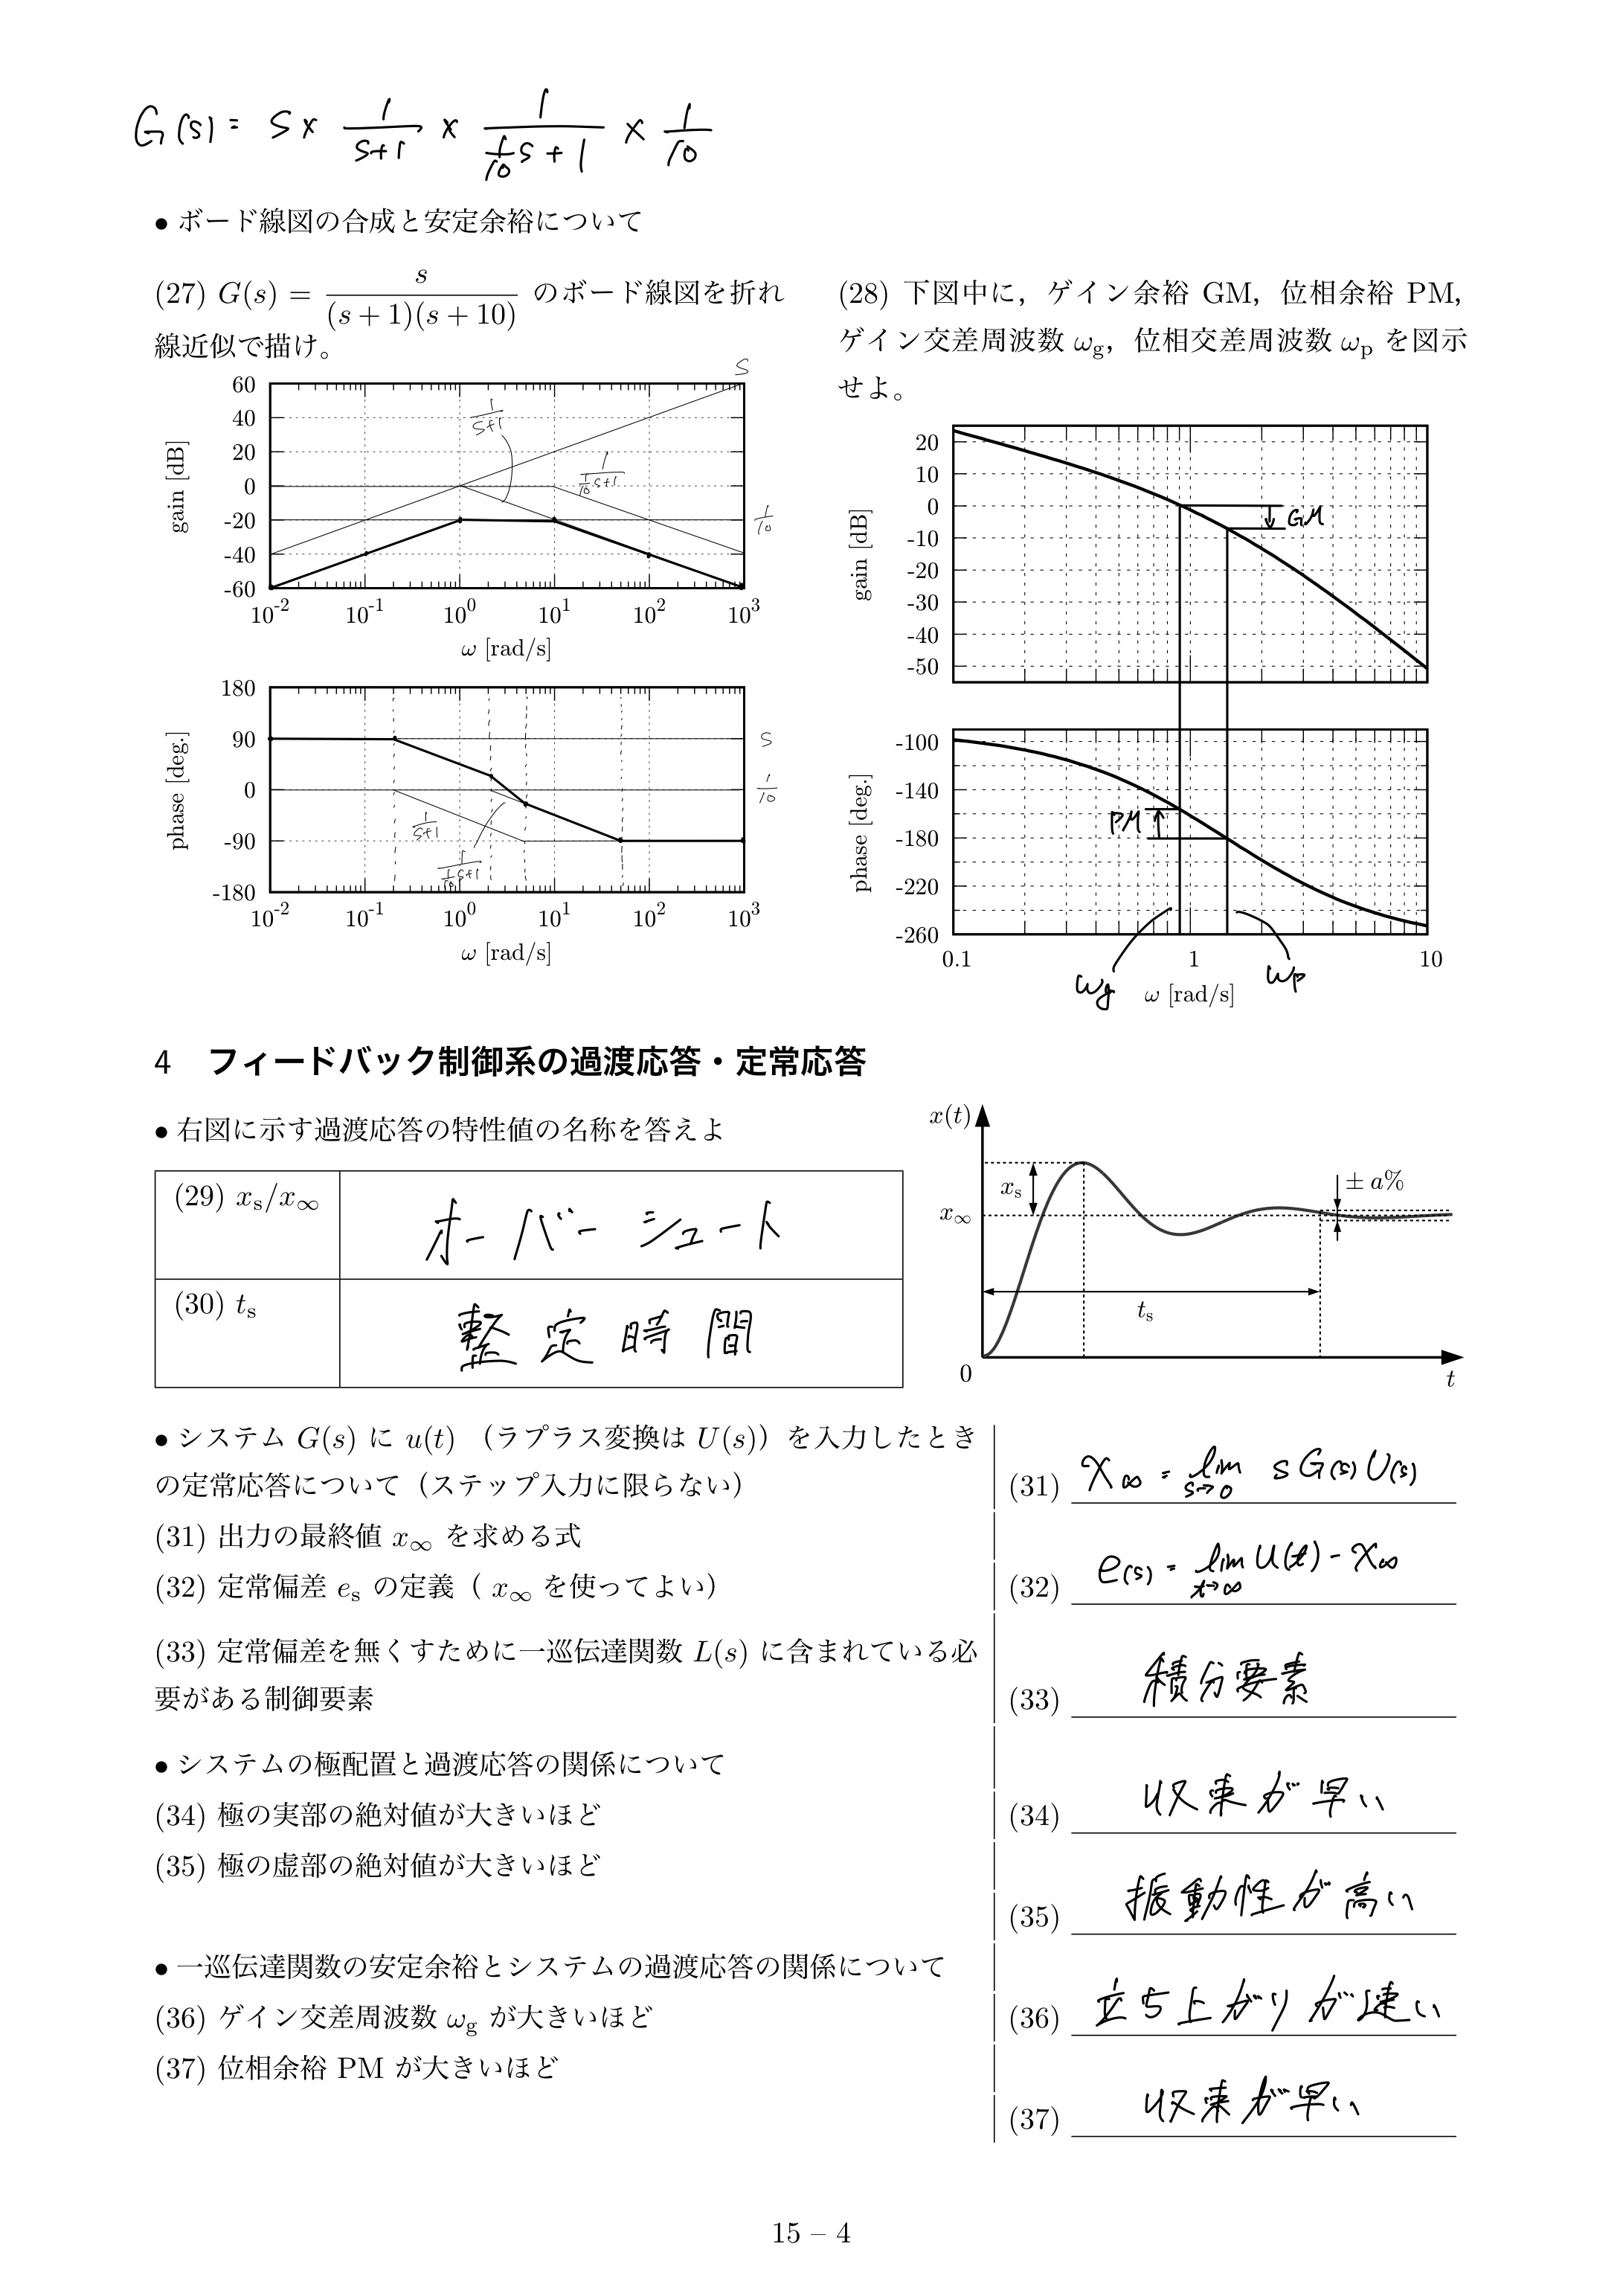 G(s) = s × 1/(s+1) × 1/(1/10 s + 1) × 1/10
● ボード線図の合成と安定余裕について
(27) G(s) = s/((s + 1)(s + 10)) のボード線図を折れ
線近似で描け。
s
60
40
20
0
-20
-40
-60
gain [dB]
1/(s+1)
1/(1/10 s+1)
1/10
10^-2 10^-1 10^0 10^1 10^2 10^3
ω [rad/s]
180
90
0
-90
-180
phase [deg.]
s
1/10
1/(s+1)
1/(1/10 s+1)
10^-2 10^-1 10^0 10^1 10^2 10^3
ω [rad/s]
(28) 下図中に，ゲイン余裕 GM，位相余裕 PM，
ゲイン交差周波数 ωg，位相交差周波数 ωp を図示
せよ。
20
10
0
-10
-20
-30
-40
-50
gain [dB]
GM
-100
-140
-180
-220
-260
phase [deg.]
PM
0.1 1 10
ωg ω [rad/s] ωp
4 フィードバック制御系の過渡応答・定常応答
● 右図に示す過渡応答の特性値の名称を答えよ
(29) xs/x∞ オーバーシュート
(30) ts 整定時間
x(t)
xs
x∞
± a%
ts
0
t
● システム G(s) に u(t) （ラプラス変換は U(s)）を入力したとき
の定常応答について（ステップ入力に限らない）
(31) 出力の最終値 x∞ を求める式
(32) 定常偏差 es の定義（ x∞ を使ってよい）
(33) 定常偏差を無くすために一巡伝達関数 L(s) に含まれている必
要がある制御要素
● システムの極配置と過渡応答の関係について
(34) 極の実部の絶対値が大きいほど
(35) 極の虚部の絶対値が大きいほど
● 一巡伝達関数の安定余裕とシステムの過渡応答の関係について
(36) ゲイン交差周波数 ωg が大きいほど
(37) 位相余裕 PM が大きいほど
(31) x∞ = lim s→0 sG(s)U(s)
(32) e(s) = lim t→∞ u(t) - x∞
(33) 積分要素
(34) 収束が早い
(35) 振動性が高い
(36) 立ち上がりが速い
(37) 収束が早い
15 – 4